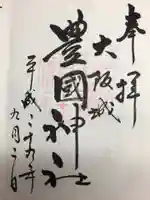 奉拝
大阪城
豊國神社
平成二十年
九月日